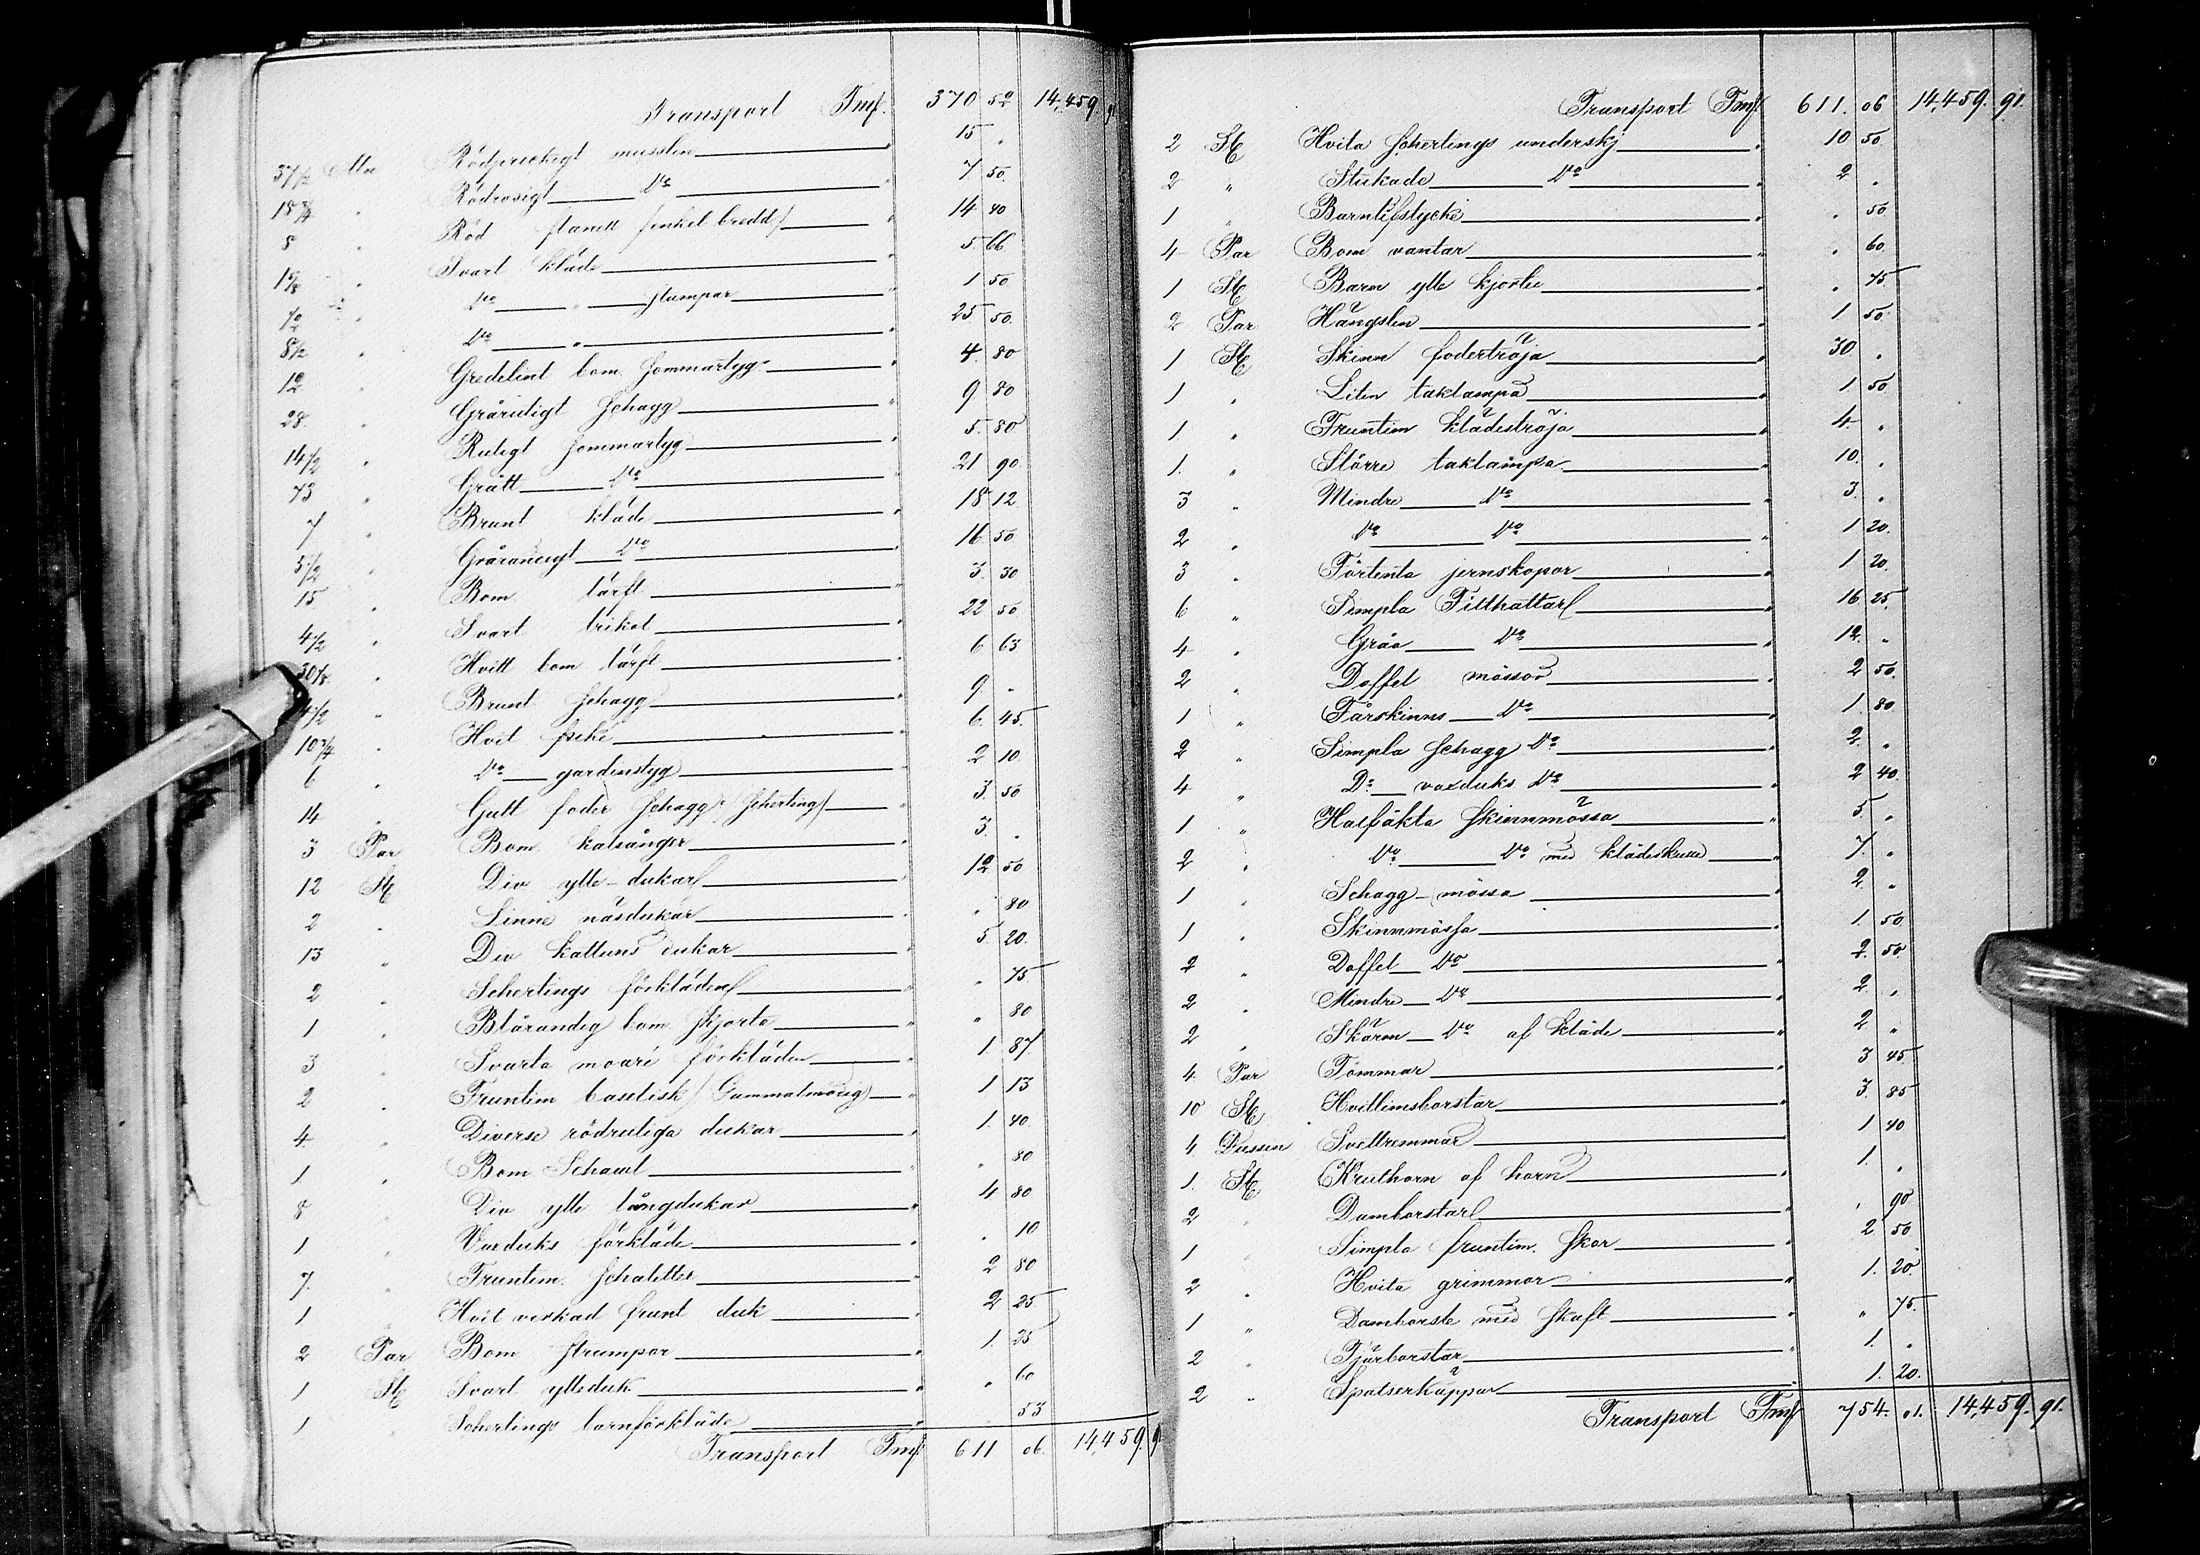 Transport Fmf. 370 52 14,459. 91
37 1/2 Aln Rödprickigt musslin " 15 "
18 3/4 " Rödrosigt Do " 7 50.
8 " Röd flanell (enkel bredd) " 14 40
1 5/8 " Svart kläde " 5 66
1/2 " Do " stumpar " 1 50
8 1/2 " Do " " 25 50.
12 " Gredelint bom sommartyg " 4. 80
28. " Grårutigt schagg " 9 80
14 1/2 " Rutigt sommartyg " 5. 80
73 " Grått Do " 21 90.
7 " Brunt kläde " 18 12
5 1/2 " Gråranigt Do " 16 50
15 " Bom lärft " 3. 30
4 1/2 " Svart trikot " 22 50
30 1/8 " Hvitt bom lärft " 6 63
4 1/2 " Brunt schagg " 9. "
10 3/4 " Hvit piké " 6. 45.
6 " Do gardinstyg " 2 10
14 " Gult foder schagg (scherting) " 3. 50
3 Par Bom kalsånger " 3. "
12 St Div ylle-dukar " 12 50
2 " Linne näsdukar " " 80
13 " Div kattuns dukar " 5 20.
2 " Schertings förkläden " " 75
1 " Blårandig bom skjorta " " 80
3 " Svarta moaré förkläden " 1 87
2 " Fruntim basilisk (Gammalmodig) " 1 13
4 " Diverse rödrutiga dukar " 1. 40
1 " Bom Schawl " " 80
8 " Div ylle långdukar " 4 80
1 " Vaxduks förkläde " " 10
7. " Fruntim. schaletter " 2 80
1 " Hvit virkad frunt duk " 2 25
2 Par Bom strumpor " 1. 25
1 St Svart ylleduk " " 60
1 " Schertings barnförkläde " 53
Transport Fmf 611 06. 14,459. 9
Transport Fmf. 611. 06 14,459. 91.
2 St Hvita schertings underskj " 10 50
2 " Stukade Do " 2 "
1 " Barnlifstycke " " 50
4 Par Bom vantar " " 60.
1 St Barn ylle kjortel " " 75
2 Par Hängslen " 1 50
1 St Skinn fodertröja " 30 "
1 " Liten taklampa " 1 50
1 " Fruntim klädeströja " 4. "
1. " Större taklampa " 10. "
3 " Mindre Do " 3. "
2 " Do Do " 1 20.
3 " Förtenta jernskopor " 1 20.
6 " Simpla Filthattar " 16 25
4 " Gråa Do " 12. "
2 " Doffel mössor " 2 50.
1 " Fårskinns Do " 1. 80
2 " Simpla schagg Do " 2. "
4 " Do vaxduks Do " 2 40.
1 " Halfäkta skinnmössa " 5 "
2 " Do Do med klädeskulle " 7. "
1 " Schagg-mössa " 2 "
1 " Skinnmössa " 1. 50.
2 " Doffel Do " 2. 50
2 " Mindre Do " 2. "
2 " Skärm Do af kläde " 2 "
4 Par Tömmar " 3 45
10 St Hvitlimsborstar " 3. 85
4 Dussin Svettremmar " 1 40
1. St Kruthorn af horn " 1. "
2 " Damborstar " " 90
1 " Simpla fruntim. skor " 2 50
2 " Hvita grimmor " 1. 20.
1 " Damborste med skaft " " 75.
2 " Tjärborstar " 1. "
2 " Spatserkäppar 1. 20.
Transport Fmf 754. 01. 14,459. 91.